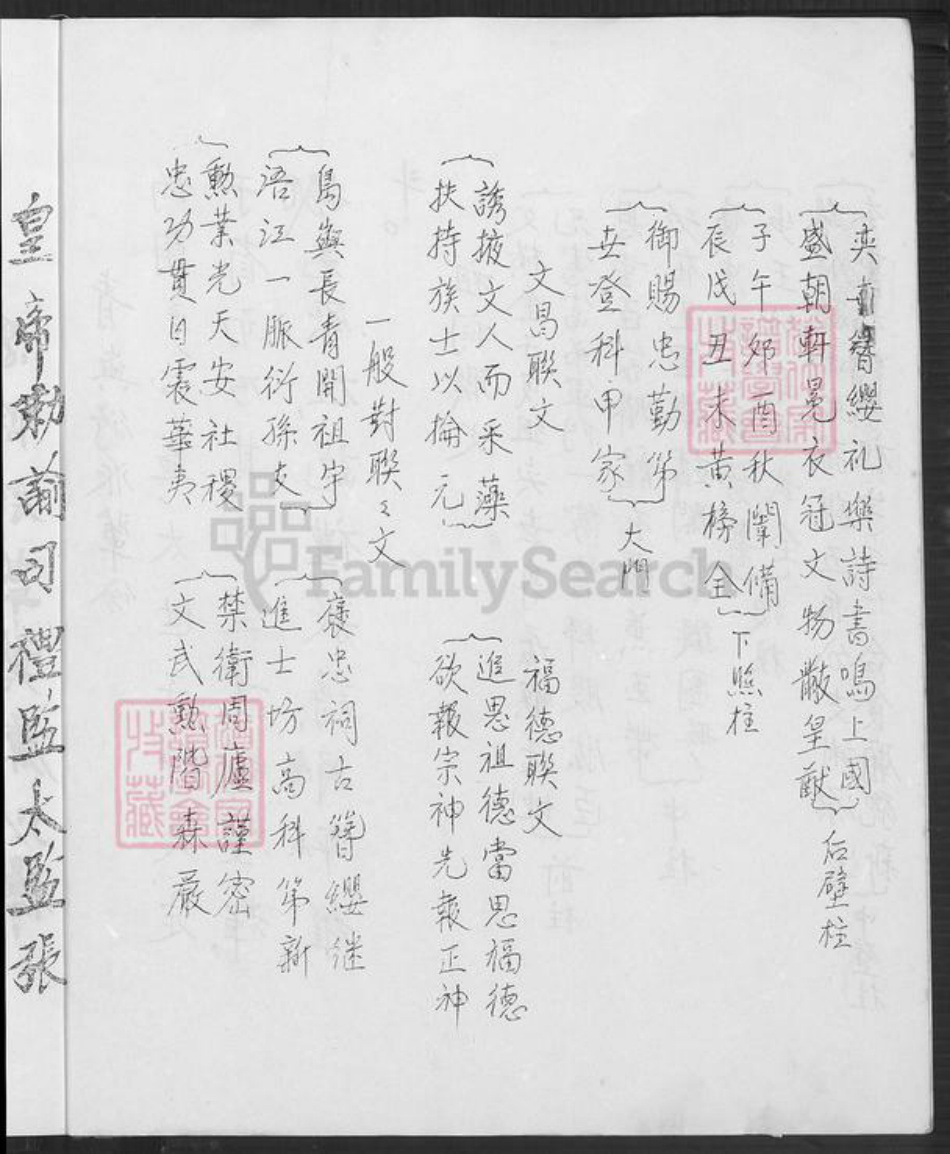 奕世簪纓礼樂詩書鳴上國
盛朝軒冕衣冠文物黻皇猷
后壁柱
子午卯酉秋闈備
辰戌丑未黃榜全
下照柱
御賜忠勤第
世登科甲家
大門
文昌聯文
誘掖文人而采藻
扶持族士以掄元
福德聯文
追思祖德當思福德
欲報宗神先報正神
一般對聯之文
島與長青開祖宇
浯江一脈衍孫支
褒忠祠古簪纓继
進士坊高科第新
勲業光天安社稷
忠功貫日震華夷
禁衛周廬謹密
文武勲階森嚴
皇帝勅諭司禮監太監張
FamilySearch
收藏
收藏